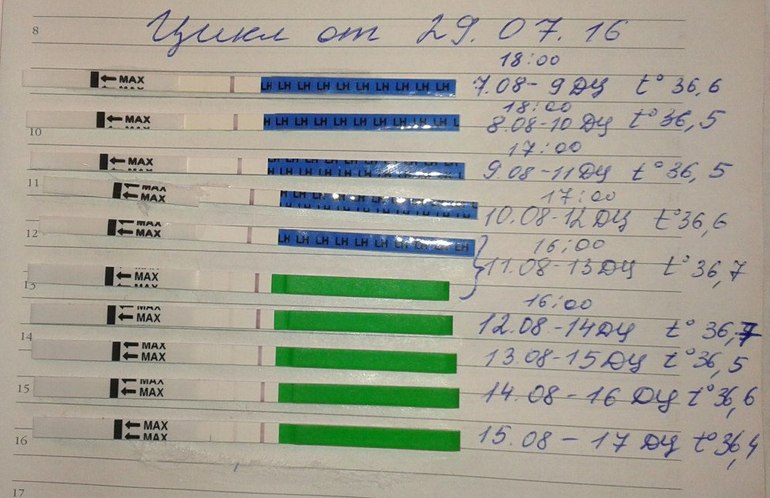 8
Цикл от 29.07.16
18:00
MAX LH LH LH LH LH LH LH LH LH LH 7.08-9 ДЦ t° 36,6
18:00
MAX LH LH LH LH LH LH LH LH LH 8.08-10 ДЦ t° 36,5
10
17:00
MAX 9.08-11 ДЦ t° 36,5
MAX
11
17:00
MAX
MAX 10.08-12 ДЦ t° 36,6
12
16:00
MAX LH LH LH LH LH LH LH LH LH LH 11.08-13 ДЦ t° 36,7
13
MAX
16:00
MAX
MAX 12.08-14 ДЦ t° 36,7
14
MAX
MAX 13.08-15 ДЦ t° 36,5
15
MAX
MAX 14.08-16 ДЦ t° 36,6
16
MAX
MAX 15.08-17 ДЦ t° 36,4
17